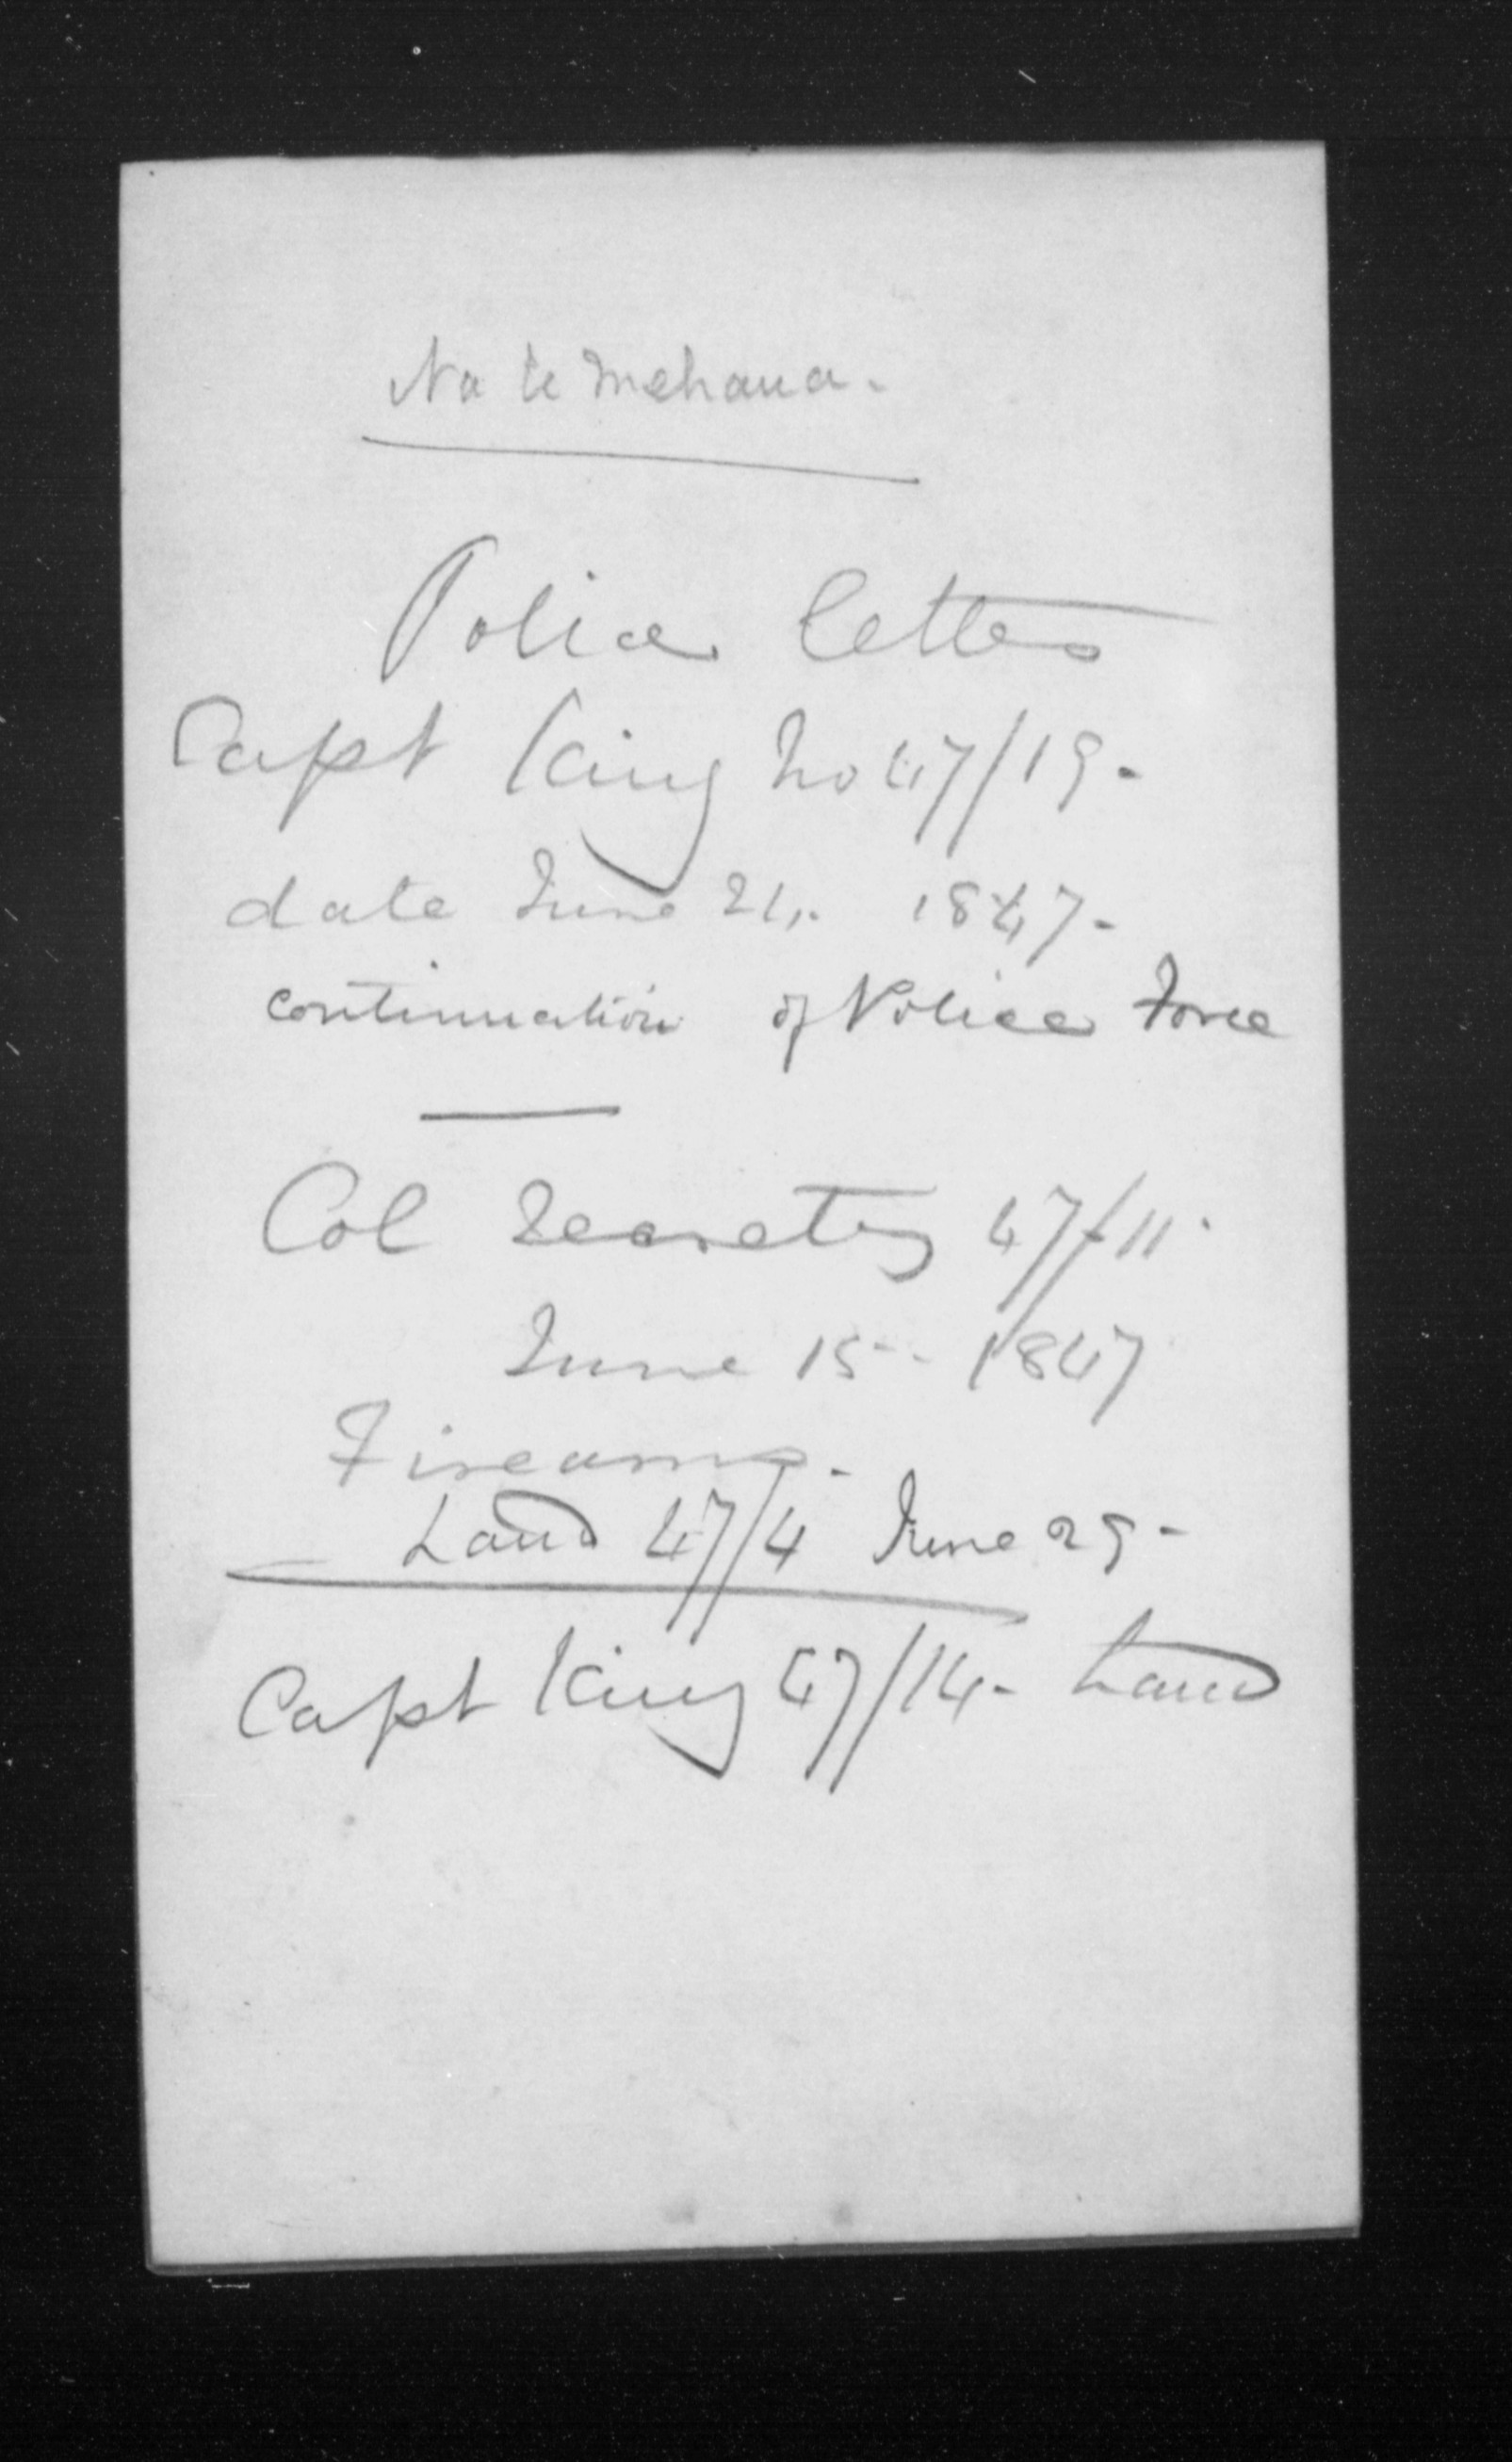 Na te Mehana.
Police letters
Capt King No 47/19 -
date June 21. 1847 -
continuation of Police Force
Col Secretary 47/11
June 15 - 1847
Firearms -
Land 47/4 June 29 -
Capt King 47/14 - Land